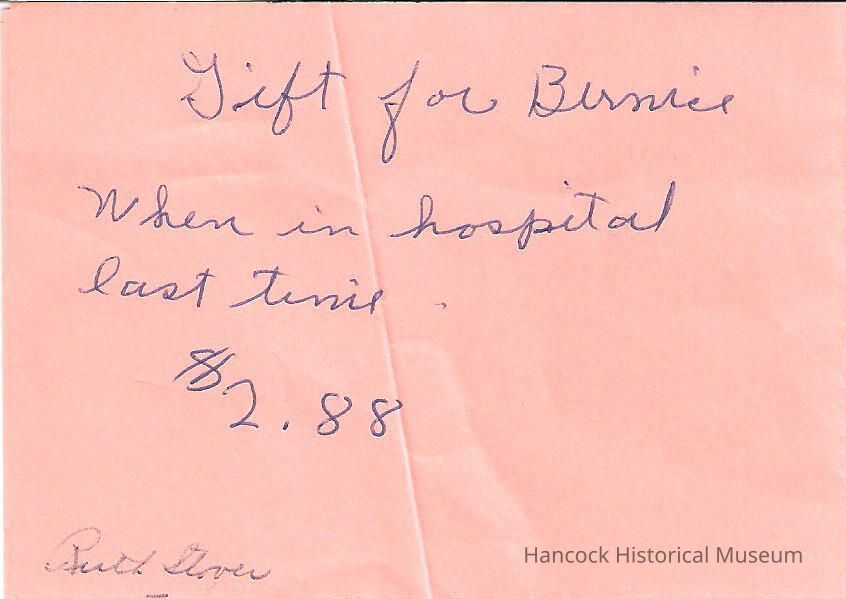 Gift for Bernice
When in hospital
last time.
$2.88
Ruth Stover
Hancock Historical Museum